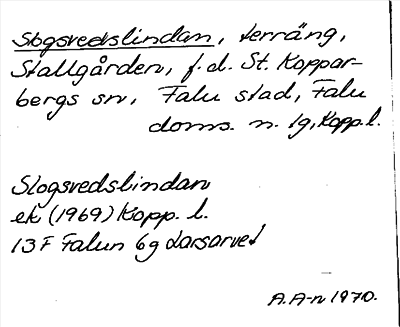 Slogsvedslindan, terräng,
Stallgården, f.d. St. Koppar-
bergs sn, Falu stad, Falu
doms. n. lg, Kopp. l.
Slogsvedslindan
ek (1969) Kopp. l.
13F Falun 6g Larsarvet
A.A-n 1970.